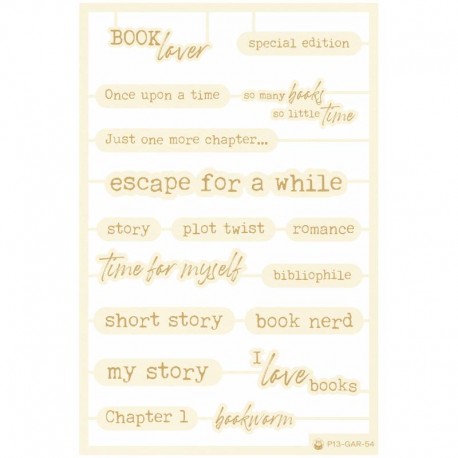 BOOK
lover
special edition
Once upon a time
so many books
so little time
Just one more chapter...
escape for a while
story
plot twist
romance
time for myself
bibliophile
short story
book nerd
my story
I
love
books
Chapter 1
bookworm
P13-GAR-54